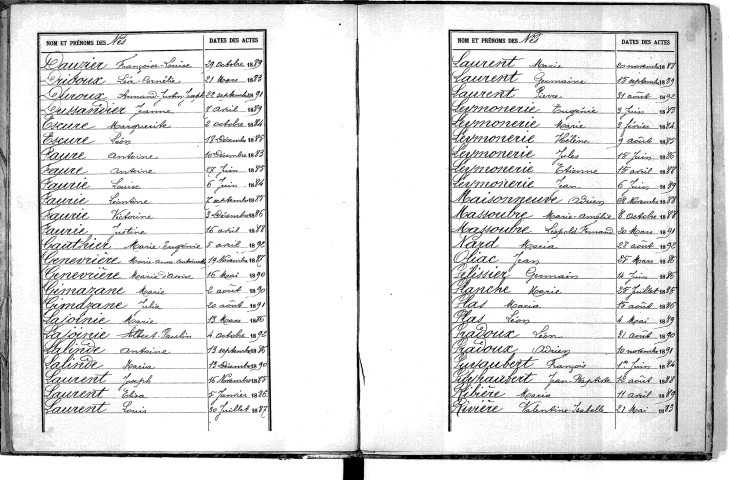 NOM ET PRÉNOMS DES Nés DATES DES ACTES
Dauzier Françoise-Louise 29 octobre 1889
Dridoux Léa-Amélie 21 Mars 1883
Duroux Armand-Justin-Joseph 22 septembre 1891
Dussandier Jeanne 7 avril 1889
Escure Marguerite 2 octobre 1884
Escure Léon 18 Décembre 1885
Faure Antoine 10 Décembre 1883
Faure Antoine 27 Juin 1885
Faurie Louise 6 Juin 1884
Faurie Léontine 7 septembre 1888
Faurie Victorine 3 Décembre 1886
Faurie Justine 16 avril 1888
Gauthier Marie-Eugénie 5 avril 1892
Genevrière Marie-anne-antoinette 19 Novembre 1887
Genevrière Marie 16 Mai 1890
Gimazane Marie 2 août 1890
Gimazane Julia 20 août 1891
Lajoinie Marie 13 Mars 1886
Lajoinie Albert-Paulin 4 octobre 1892
Lalinde Antoine 13 septembre 1886
Lalinde Maria 13 Décembre 1890
Laurent Joseph 16 Novembre 1885
Laurent Elisa 5 Janvier 1886
Laurent Louis 30 Juillet 1887
NOM ET PRÉNOMS DES Nés DATES DES ACTES
Laurent Marie 20 novembre 1888
Laurent Germaine 15 septembre 1889
Laurent Pierre 31 août 1892
Leymonerie Eugénie 3 Juin 1883
Leymonerie Marie 3 février 1884
Leymonerie Hélène 9 août 1885
Leymonerie Jules 15 Juin 1886
Leymonerie Etienne 15 avril 1888
Leymonerie Jean 6 Juin 1889
Maisonneuve Adrien 28 Novembre 1888
Massoubre Marie-Amélie 8 octobre 1888
Massoubre Léopold-Fernand 20 Mars 1891
Nard Maria 28 août 1892
Oliac Jean 25 Mars 1886
Pélissier Germain 14 Juin 1886
Planche Marie 25 Juillet 1885
Plas Maria 15 août 1886
Plas Léon 4 Mai 1889
Pradoux Léon 31 août 1890
Pradoux Adrien 10 novembre 1891
Puyaubert François 1er Juin 1884
Puyhaubert Jean-Baptiste 12 août 1888
Ribière Maria 11 avril 1889
Rivière Valentine-Isabelle 21 Mai 1883